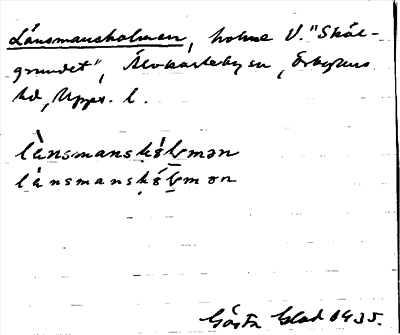 Länsmansholmen, holme V. "Skål-
grundet", Älvkarleby sn, Örbyhus
hd, Upps. l.
länsmanshɷ̀lmən
länsmanshɷ́lmən
Gösta Glad 1935.